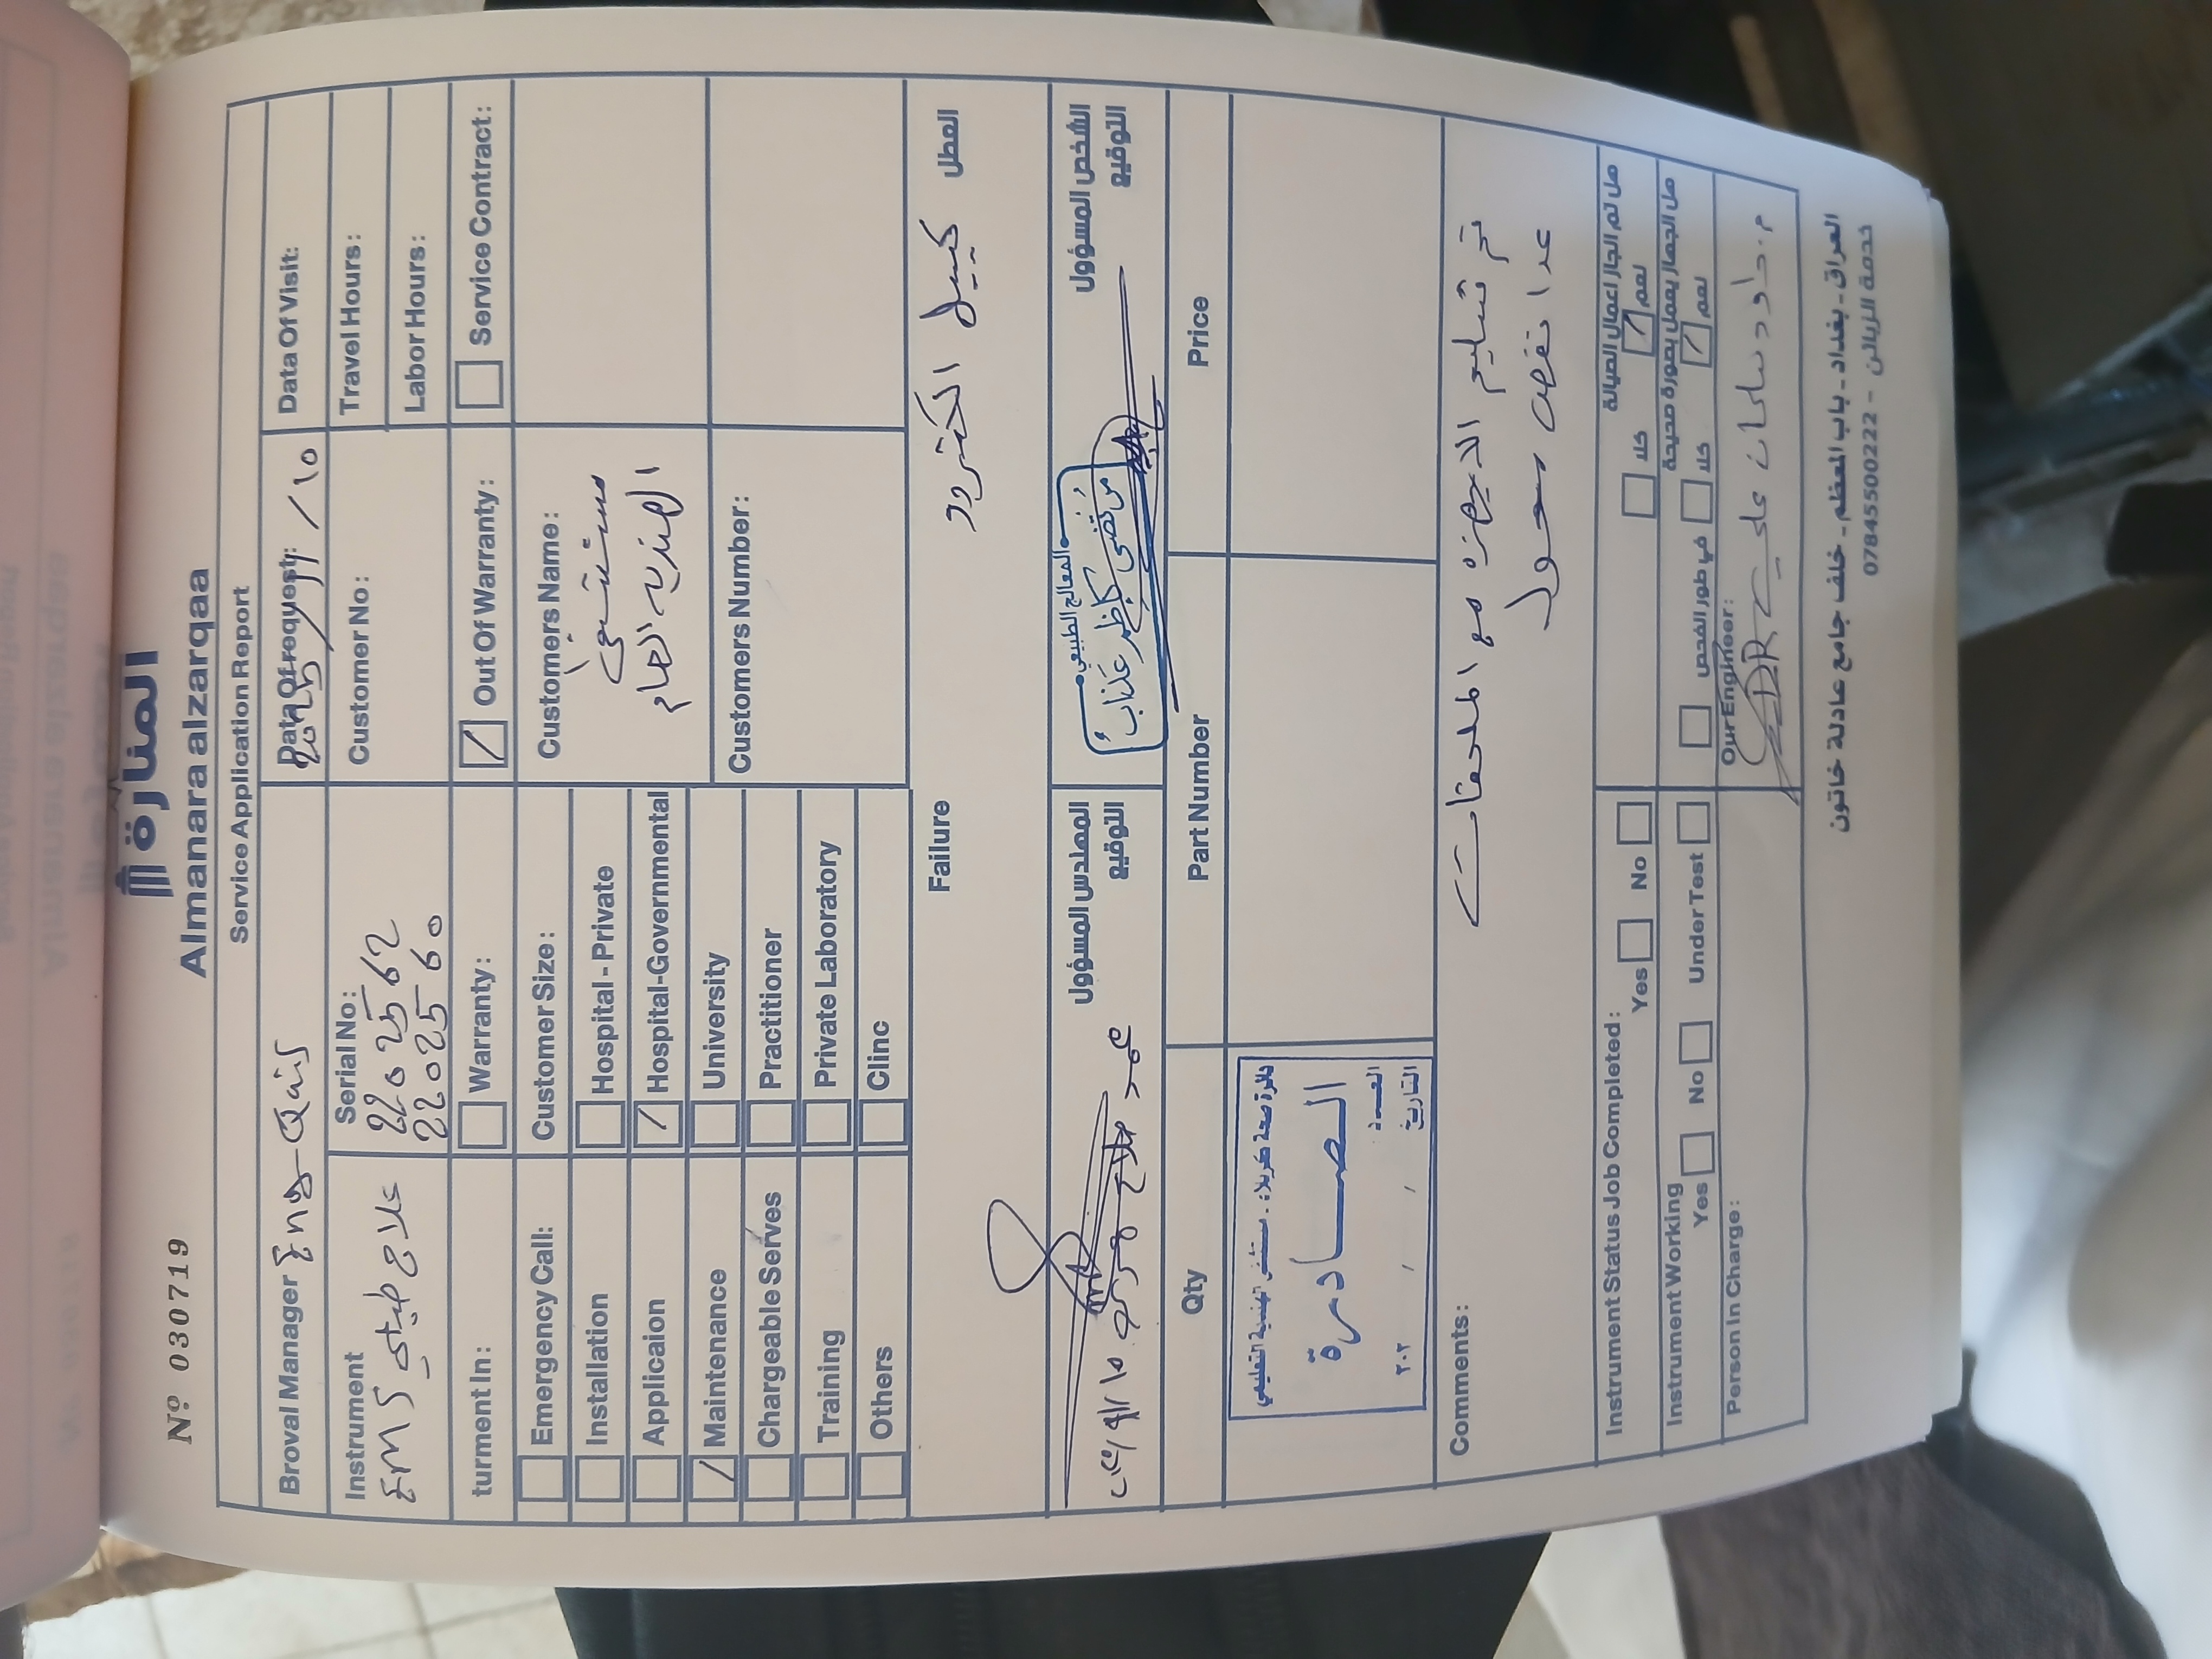 المنارة
Almanara alzarqaa
Nº 030719
Service Application Report
Broval Manager Eng-Qais
Data Of request: 2025/11/10
Data Of Visit:
Instrument
EMS علاج طبيعي
Serial No:
22025562
2202560
Customer No:
Travel Hours:
Labor Hours:
turment In:
Warranty:
Out Of Warranty:
Service Contract:
Emergency Call:
Customer Size:
Customers Name:
مستشفى
الهندية العام
Installation
Hospital - Private
Applicaion
Hospital-Governmental
Maintenance
University
Customers Number:
Chargeable Serves
Practitioner
Training
Private Laboratory
Others
Clinc
Failure
العطل
كيبل الكترود
المهندس المسؤول
التوقيع
الشخص المسؤول
التوقيع
المعالج الطبيعي
مرتضى كاظم عذاب
Qty
Part Number
Price
دائرة صحة كربلاء - مستشفى الهندية التعليمي
الصادرة
العدد
التاريخ / / ٢٠٢
Comments:
تم تسليم الاجهزه مع الملحقات
عدا نقص محول
Instrument Status Job Completed:
Yes
No
هل تم انجاز اعمال الصيانة
كلا
نعم
Instrument Working
Yes
No
Under Test
هل الجهاز يعمل بصورة صحيحة
في طور الفحص
كلا
نعم
Person In Charge:
Our Engineer:
العراق - بغداد - باب المعظم - خلف جامع عادلة خاتون
خدمة الزبائن - 07845500222